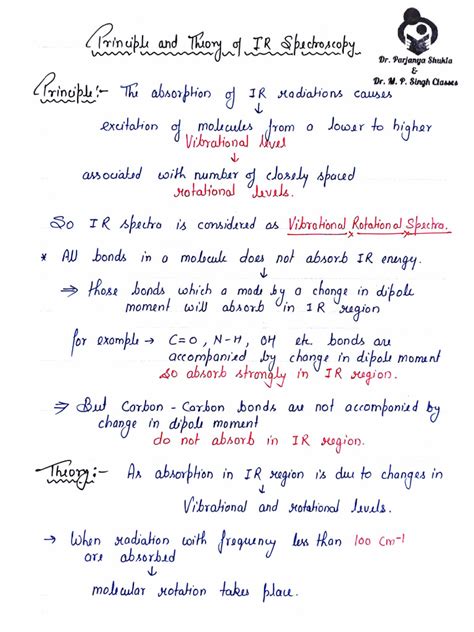 Principle and Theory of IR Spectroscopy
Dr. Parjanya Shukla
&
Dr. M. P. Singh Classes
Principle:- The absorption of IR radiations causes
↓
excitation of molecules from a lower to higher
Vibrational level
↓
associated with number of closely spaced
rotational levels.
So IR spectra is considered as Vibrational Rotational Spectra.
* All bonds in a molecule does not absorb IR energy.
↓
⇒ those bonds which a made by a change in dipole
moment will absorb in IR region
for example → C=O, N-H, OH etc bonds are
accompanied by change in dipole moment
so absorb strongly in IR region.
⇒ But Carbon - Carbon bonds are not accompanied by
change in dipole moment
do not absorb in IR region.
Theory:- As absorption in IR region is due to changes in
↓
Vibrational and rotational levels.
→ When radiation with frequency less than 100 cm-1
are absorbed
↓
molecular rotation takes place.